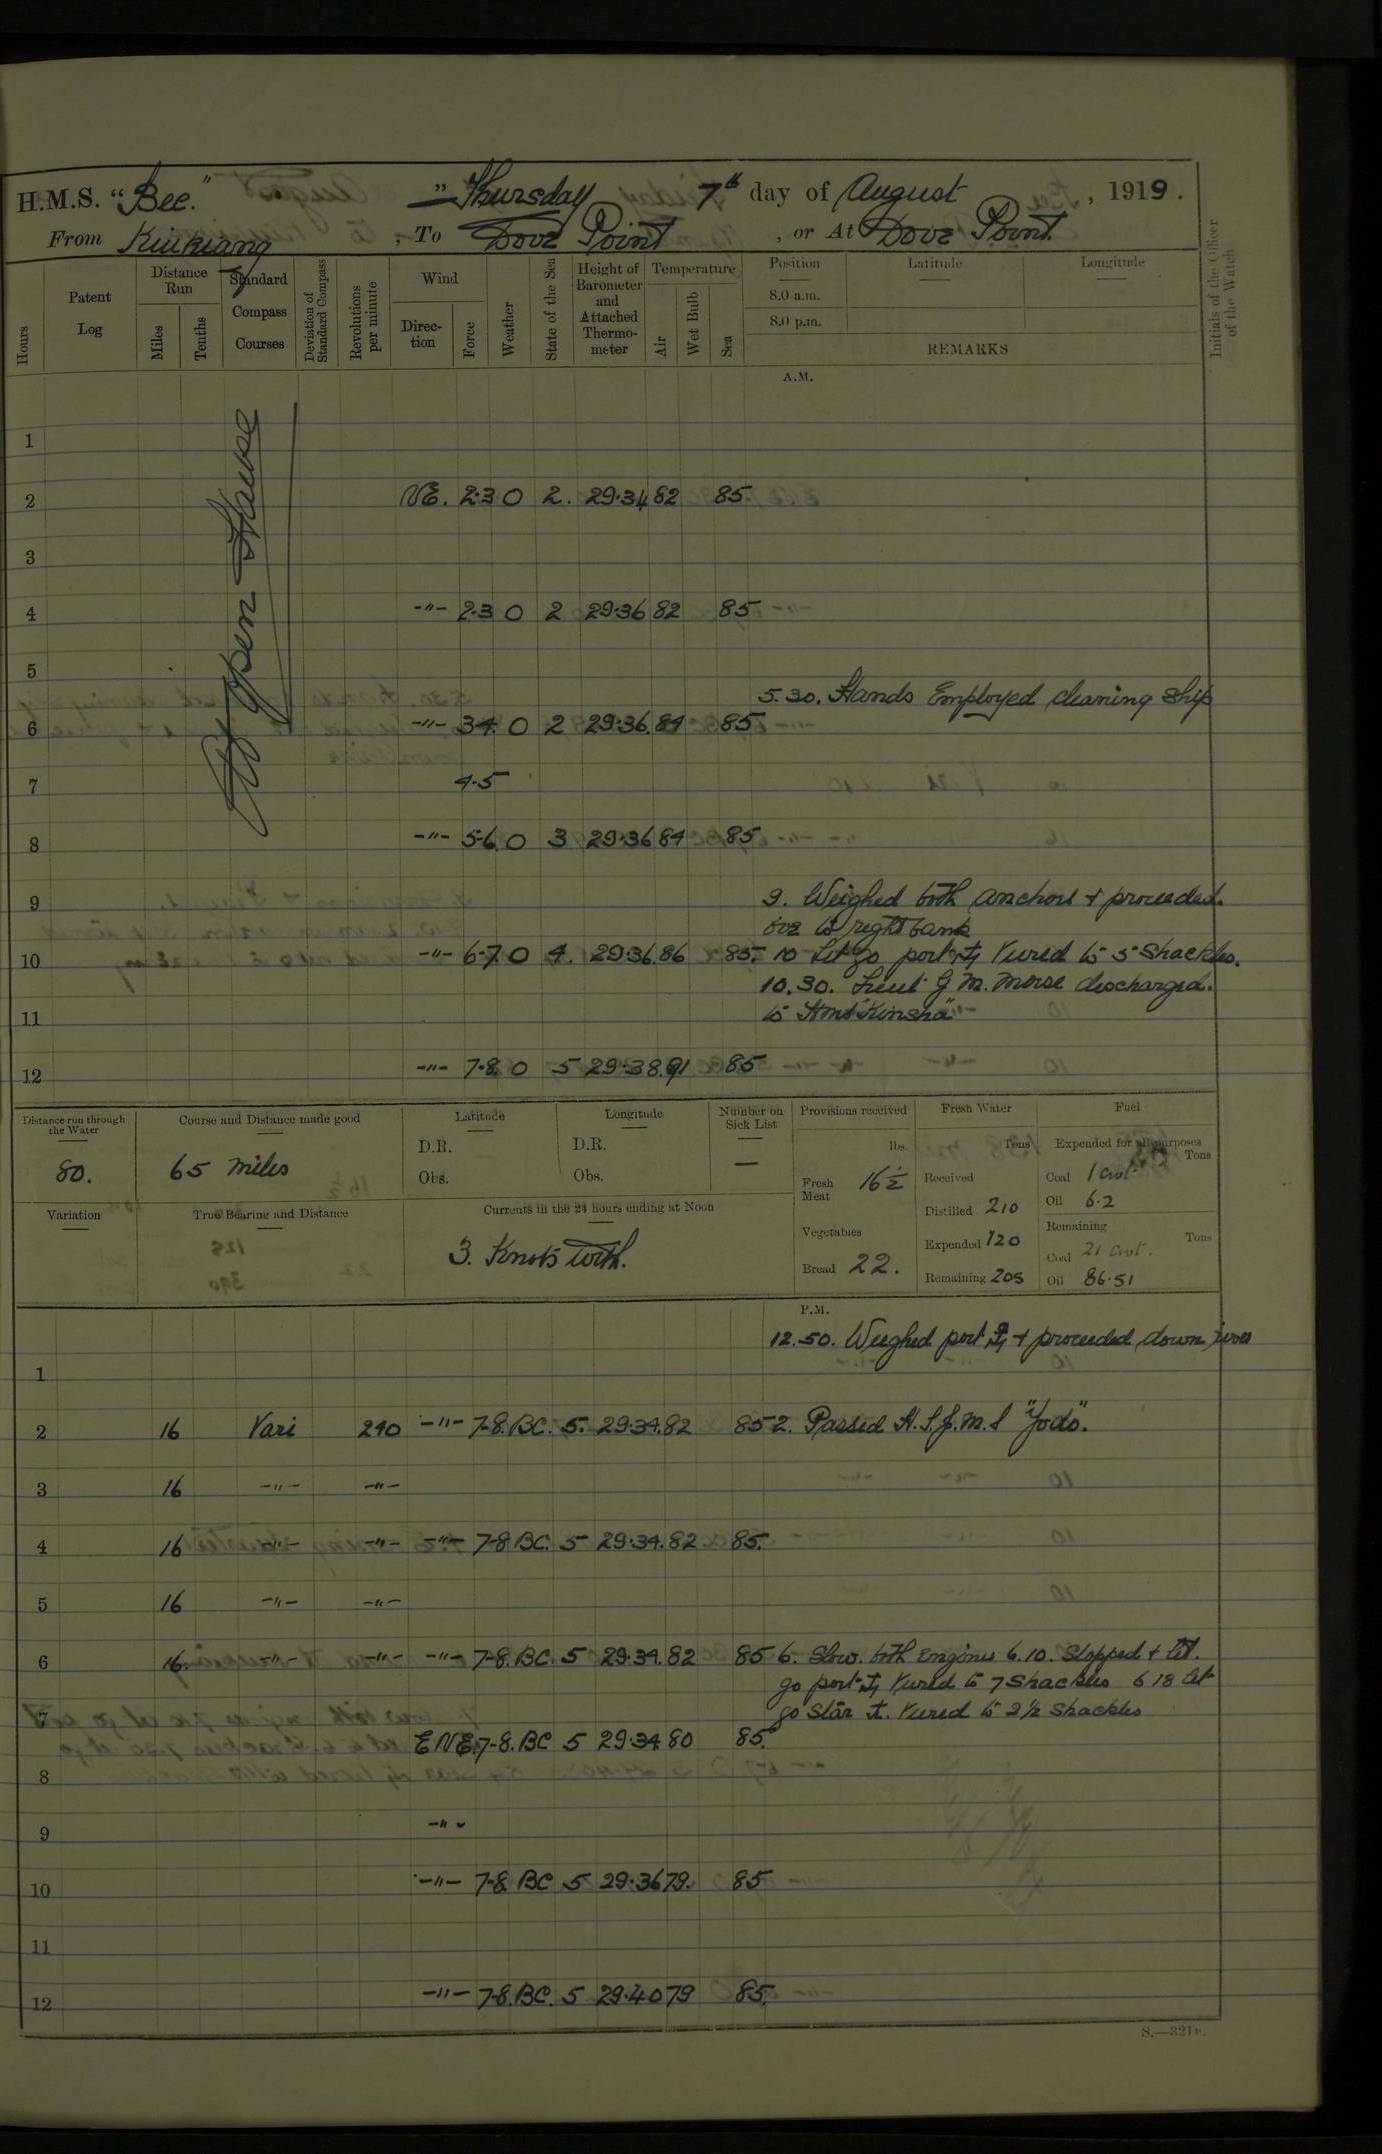 H.M.S. "Bee." Thursday 7th day of August, 1919.
From Kiukiang, To Dove Point, or At Dove Point.
Hours
Patent Log
Distance Run
Miles
Tenths
Standard Compass Courses
Deviation of Standard Compass
Revolutions per minute
Wind
Direction
Force
Weather
State of the Sea
Height of Barometer and Attached Thermometer
Temperature
Air
Wet Bulb
Sea
Position
8.0 a.m.
8.0 p.m.
Latitude
Longitude
REMARKS
Initials of the Officer of the Watch
A.M.
Open Hawse
1
2 NE. 2·3 O 2. 29·34 82 85
3
4 -"- 2·3 O 2 29·36 82 85
5
5.30. Hands Employed cleaning Ship
6 -"- 34. O 2 29·36. 84 85
7 4·5
8 -"- 5·6. O 3 29·36 84 85
9 9. Weighed both anchors + proceeded.
to right bank
10 -"- 6·7. O 4. 29·36. 86 85. 10 Let go port ⚓ Vured to 5 Shackles.
10.30. Lieut G M. Morse discharged.
11 to Hms "Kinsha"
12 -"- 7·8. O 5 29·38. 91 85
Distance run through the Water
80.
Course and Distance made good
65 miles
Latitude
D.R.
Obs.
Longitude
D.R.
Obs.
Number on Sick List
—
Variation
True Bearing and Distance
Currents in the 24 hours ending at Noon
3. Knots with.
Provisions received
lbs.
Fresh Meat 16½
Vegetables
Bread 22.
Fresh Water
Tons
Received
Distilled 210
Expended 120
Remaining 205
Fuel
Expended for all purposes
Tons
Coal 1 cwt
Oil 6.2
Remaining
Tons
Coal 21 cwt.
Oil 86·51
P.M.
12.50. Weighed port ⚓ + proceeded down river
1
2 16 Vari 240 -"- 7-8. BC. 5. 29·34. 82 85 2. Passed H.I.J.M.S "Yodo".
3 16 -"- -"-
4 16 -"- -"- -"- 7-8 BC. 5 29·34. 82 85.
5 16 -"- -"-
6 16. -"- -"- -"- 7-8. BC. 5 29.34. 82 85 6. Slow. both Engines 6.10. Stopped + let.
go port ⚓ Vured to 7 Shackles 6 18 let
7 go Star ⚓. Vured to 2½ Shackles
ENE. 7-8. BC 5 29·34 80 85.
8
9 -"-
10 -"- 7-8 BC 5 29·36 79. 85
11
12 -"- 7-8. BC. 5 29.40 79 85.
S.—321